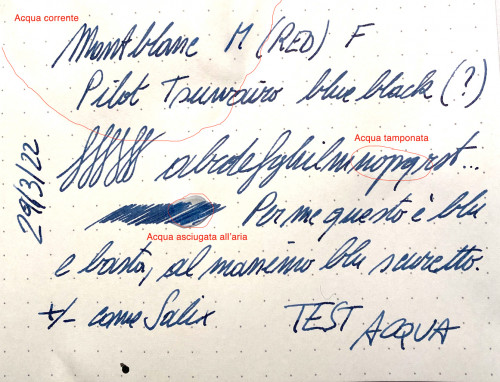 Acqua corrente
Montblanc M (RED) F
Pilot Tsuwairo blue black (?)
Acqua tamponata
abcdefghilmnopqrst...
29/3/22
Per me questo è blu
Acqua asciugata all'aria
e basta, al massimo blu scuretto.
+/- come Salix
TEST ACQUA